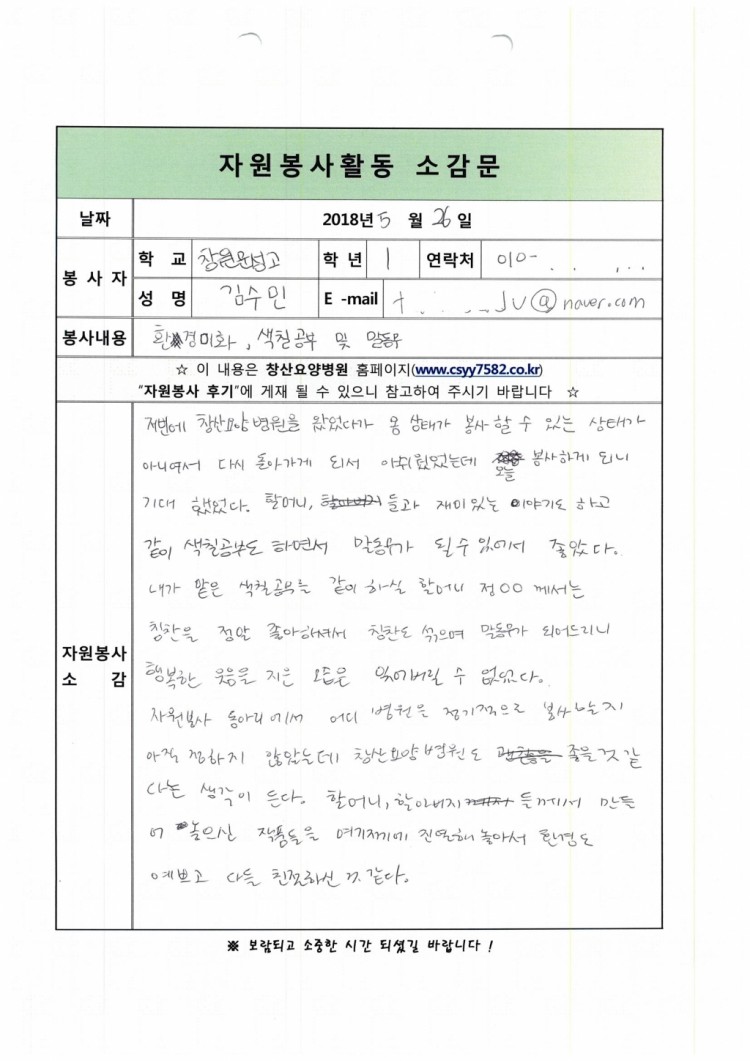 자원봉사활동 소감문
날짜 2018년 5 월 26 일
봉 사 자 학 교 창원문성고 학 년 1 연락처 010-
성 명 김수민 E -mail @naver.com
봉사내용 환경미화, 색칠공부 및 말동무
☆ 이 내용은 창산요양병원 홈페이지(www.csyy7582.co.kr)
"자원봉사 후기"에 게재 될 수 있으니 참고하여 주시기 바랍니다 ☆
자원봉사
소 감
저번에 창산요양병원을 왔었다가 몸 상태가 봉사 할 수 있는 상태가
아니여서 다시 돌아가게 되서 아쉬웠었는데 오늘 봉사하게 되니
기대 했었다. 할머니, 들과 재미있는 이야기도 하고
같이 색칠공부도 하면서 말동무가 될수 있어서 좋았다.
내가 맡은 색칠공부를 같이 하실 할머니 정OO 께서는
칭찬을 정말 좋아하셔서 칭찬도 섞으며 말동무가 되어드리니
행복한 웃음을 지은 모습은 잊어버릴 수 없었다.
자원봉사 동아리에서 어디 병원을 정기적으로 봉사
아직 정하지 않았는데 창산요양병원도 좋을것 같
다는 생각이 든다. 할머니, 할아버지 들께서 만들
어 놓으신 작품들을 여기저기에 진열해 놓아서 환경도
예쁘고 다들 친절하신 것 같다.
※ 보람되고 소중한 시간 되셨길 바랍니다 !